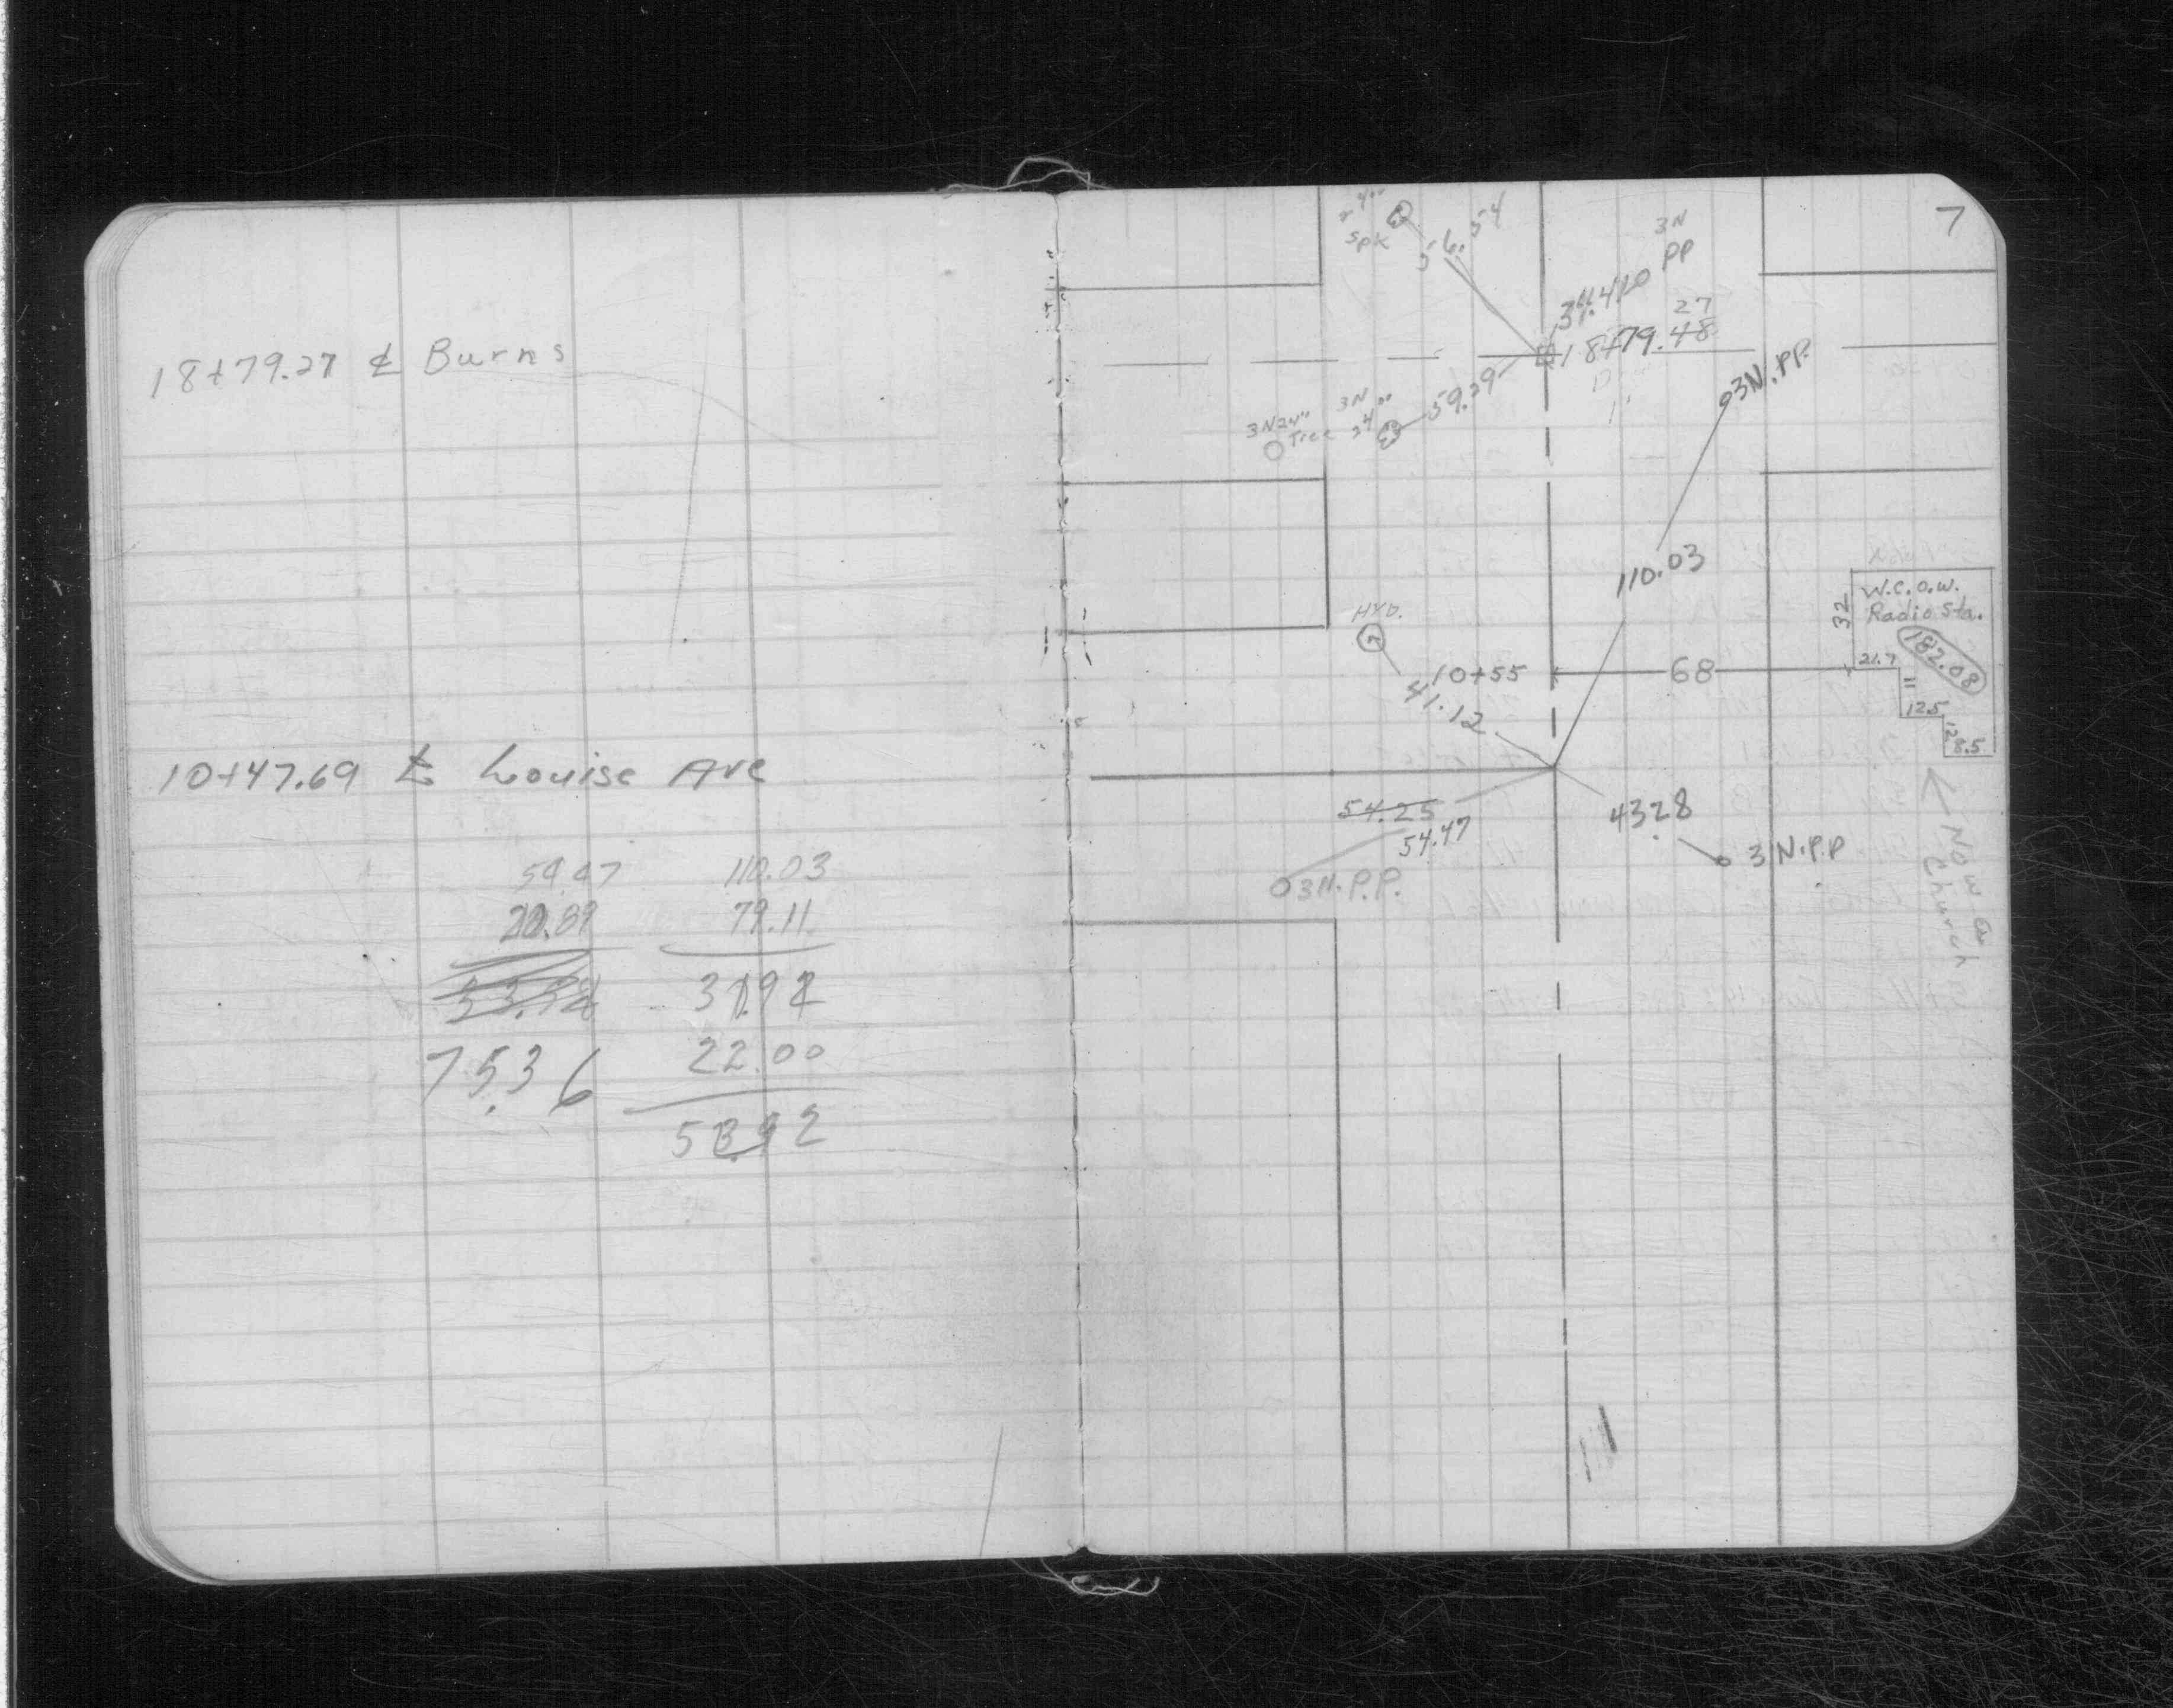 18+79.27 ℄ Burns
10+47.69 ℄ Louise Ave
54.47 110.03
20.89 79.11
3192
75.36 22.00
5392
7
spk
56.54
3N
PP
27
18+79.48
3N. PP.
59.29
3N 24" 3N
Tree 24"
110.03
HYD.
W.C.O.W.
Radio Sta.
32
182.08
21.7
11
12.5
12
8.5
10+55
68
41.12
54.25
54.47
43.28
3 N.P.P
3N. P.P.
Now a
Church